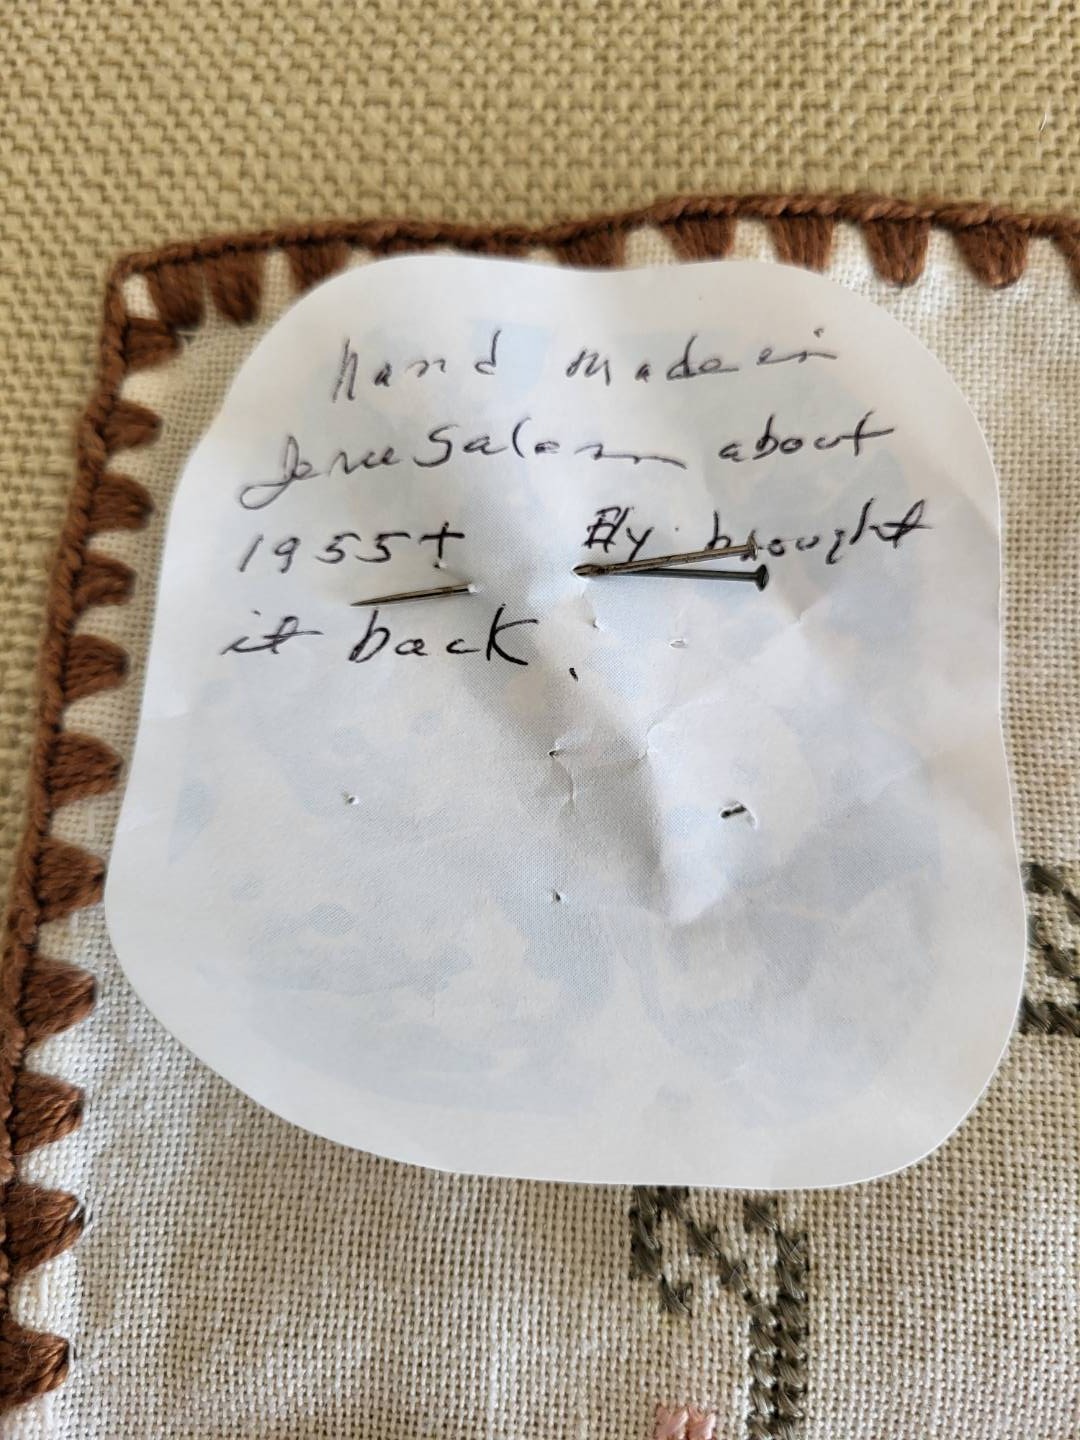 hand made in
Jerusalem about
1955+ Ely brought
it back